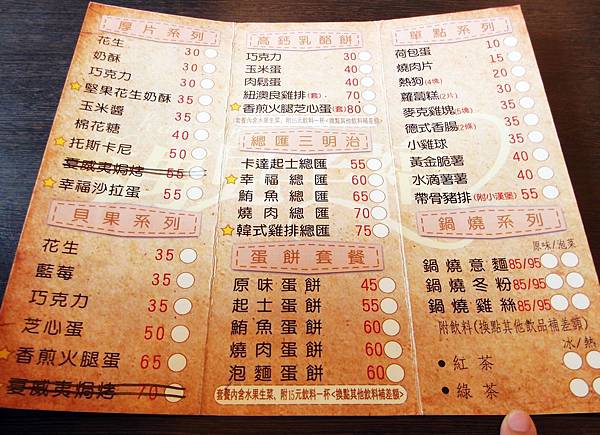 厚片系列
花生 30
奶酥 30
巧克力 30
堅果花生奶酥 35
玉米醬 35
棉花糖 40
托斯卡尼 50
夏威夷焗烤 55
幸福沙拉蛋 55
貝果系列
花生 35
藍莓 35
巧克力 35
芝心蛋 50
香煎火腿蛋 65
夏威夷焗烤 70
高鈣乳酪餅
巧克力 30
玉米蛋 40
肉鬆蛋 40
紐澳良雞排(套) 70
香煎火腿芝心蛋(套) 80
套餐內含水果生菜、附15元飲料一杯<換點其他飲料補差額>
總匯三明治
卡達起士總匯 55
幸福總匯 60
鮪魚總匯 65
燒肉總匯 70
韓式雞排總匯 75
蛋餅套餐
原味蛋餅 45
起士蛋餅 55
鮪魚蛋餅 60
燒肉蛋餅 60
泡麵蛋餅 60
套餐內含水果生菜、附15元飲料一杯<換點其他飲料補差額>
單點系列
荷包蛋 10
燒肉片 15
熱狗(4塊) 20
蘿蔔糕(2片) 30
麥克雞塊(5塊) 35
德式香腸(2條) 35
小雞球 35
黃金脆薯 40
水滴薯薯 40
帶骨豬排(附小漢堡) 55
鍋燒系列
原味/泡菜
鍋燒意麵 85/95
鍋燒冬粉 85/95
鍋燒雞絲 85/95
附飲料(換點其他飲品補差額)
冰/熱
•紅茶
•綠茶